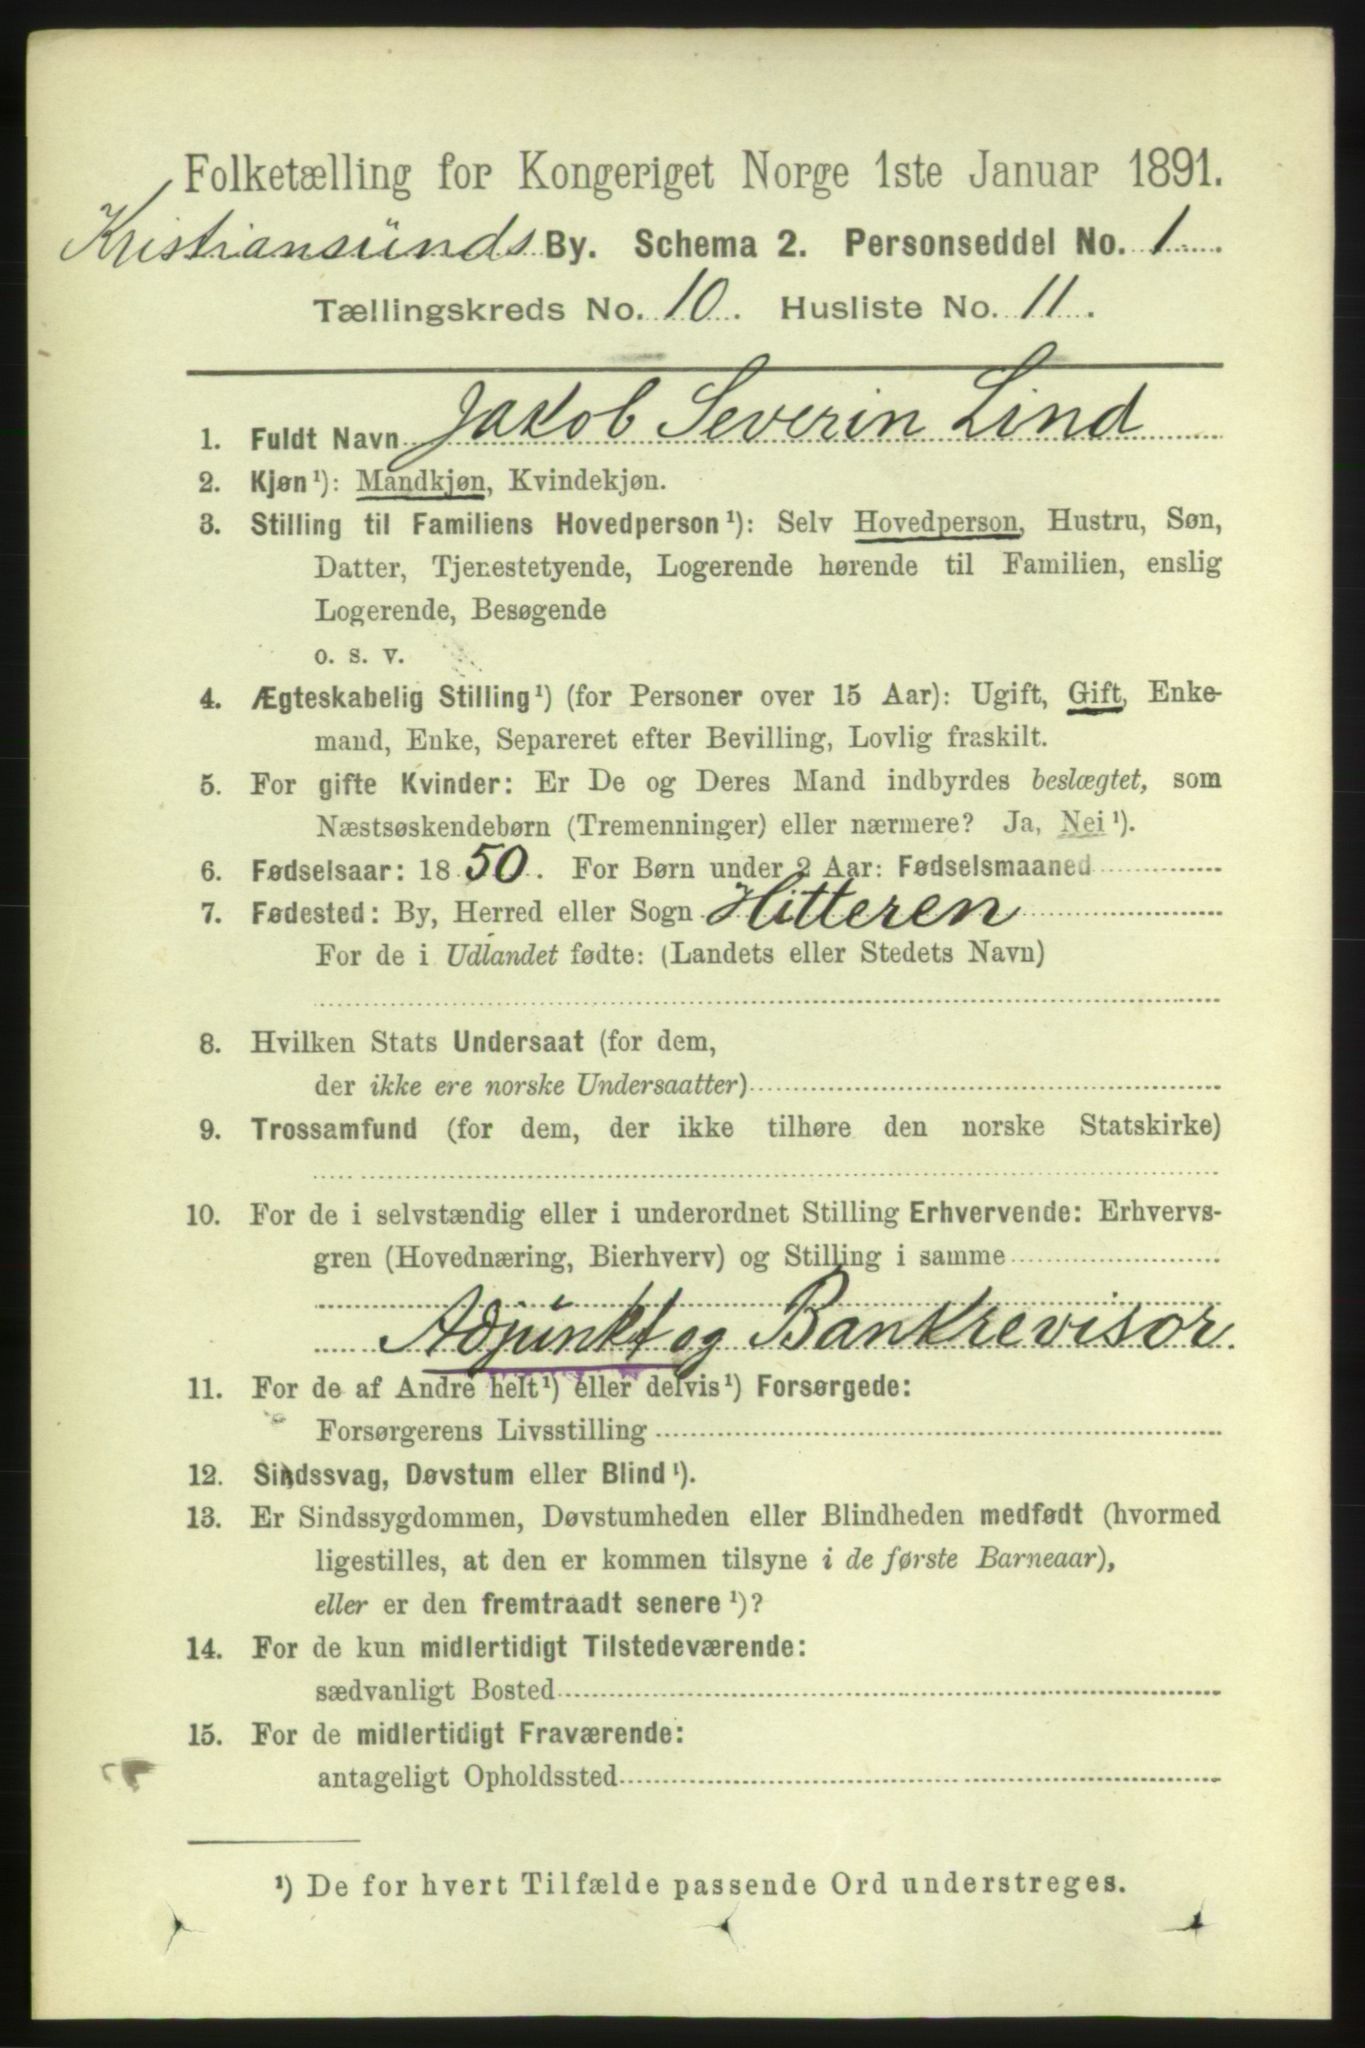 Folketælling for Kongeriget Norge 1ste Januar 1891.
Kristiansünds By. Schema 2. Personseddel No. 1
Tællingskreds No. 10. Husliste No. 11.
1. Fuldt Navn Jakob Severin Lind
2. Kjøn¹): Mandkjøn, Kvindekjøn.
3. Stilling til Familiens Hovedperson¹): Selv Hovedperson, Hustru, Søn,
Datter, Tjenestetyende, Logerende hørende til Familien, enslig
Logerende, Besøgende
o. s. v.
4. Ægteskabelig Stilling¹) (for Personer over 15 Aar): Ugift, Gift, Enke-
mand, Enke, Separeret efter Bevilling, Lovlig fraskilt.
5. For gifte Kvinder: Er De og Deres Mand indbyrdes beslægtet, som
Næstsøskendebørn (Tremenninger) eller nærmere? Ja, Nei¹).
6. Fødselsaar: 1850. For Børn under 2 Aar: Fødselsmaaned
7. Fødested: By, Herred eller Sogn Hitteren
For de i Udlandet fødte: (Landets eller Stedets Navn)
8. Hvilken Stats Undersaat (for dem,
der ikke ere norske Undersaatter)
9. Trossamfund (for dem, der ikke tilhøre den norske Statskirke)
10. For de i selvstændig eller i underordnet Stilling Erhvervende: Erhvervs-
gren (Hovednæring, Bierhverv) og Stilling i samme
Adjünkt og Bankrevisor.
11. For de af Andre helt¹) eller delvis¹) Forsørgede:
Forsørgerens Livsstilling
12. Sindssvag, Døvstum eller Blind¹).
13. Er Sindssygdommen, Døvstumheden eller Blindheden medfødt (hvormed
ligestilles, at den er kommen tilsyne i de første Barneaar),
eller er den fremtraadt senere¹)?
14. For de kun midlertidigt Tilstedeværende:
sædvanligt Bosted
15. For de midlertidigt Fraværende:
antageligt Opholdssted
¹) De for hvert Tilfælde passende Ord understreges.